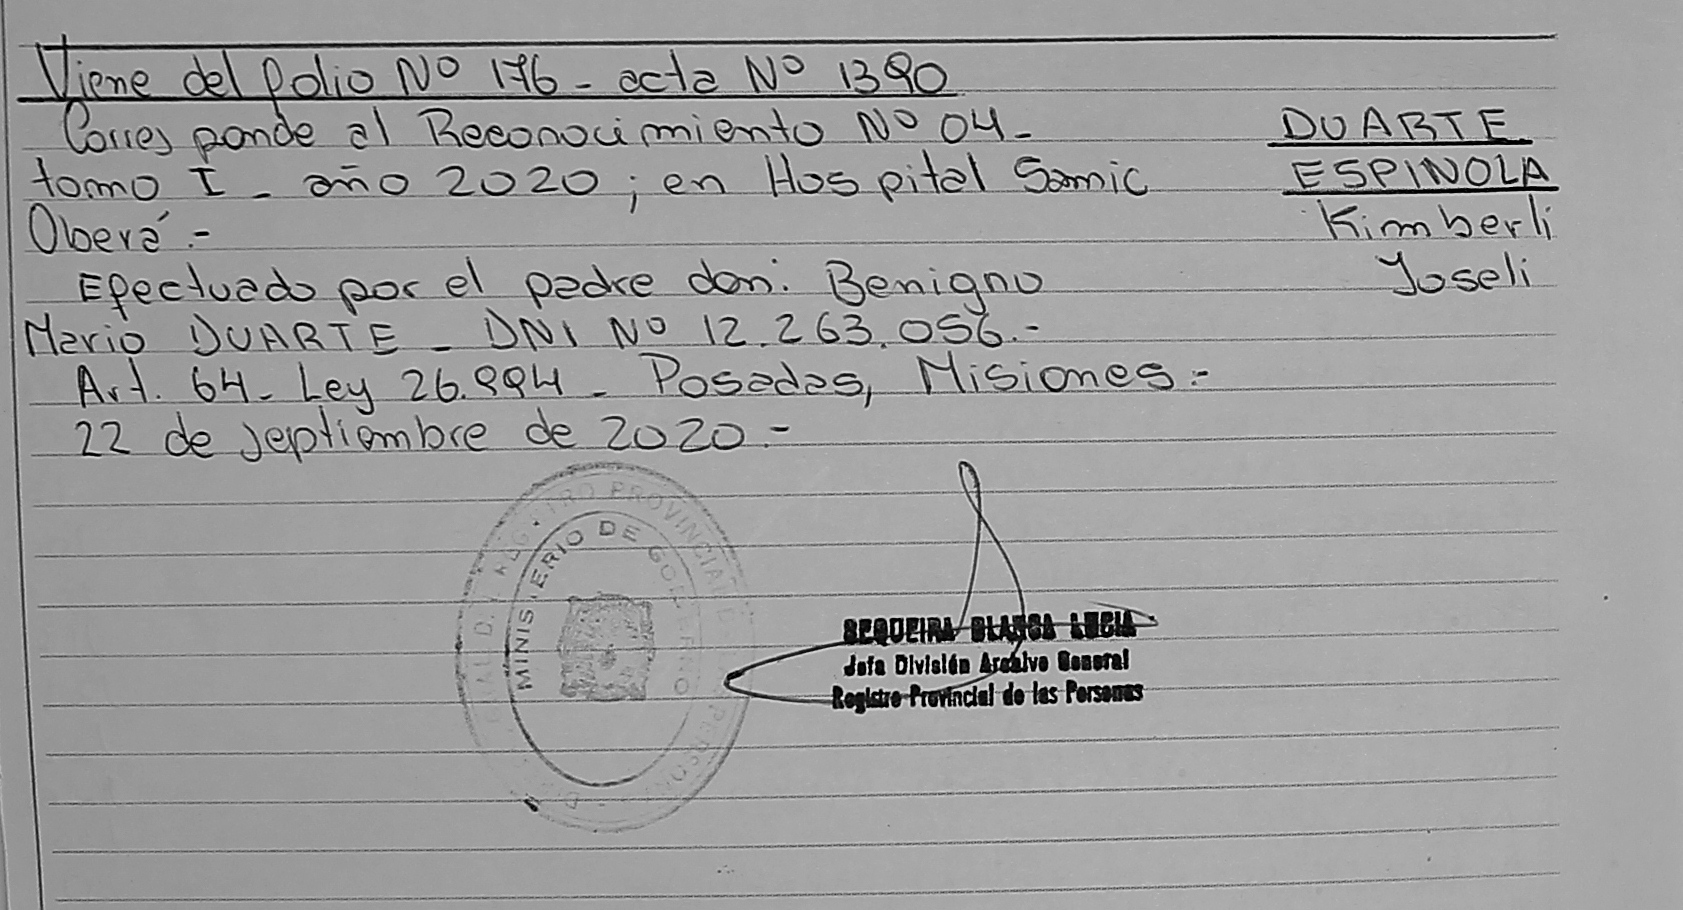 Viene del folio Nº 176 - acta Nº 1390
Corresponde al Reconocimiento Nº 04 -
tomo I - año 2020 ; en Hospital Samic
Oberá .-
Efectuado por el padre don: Benigno
Mario DUARTE - DNI Nº 12.263.056.-
Art. 64 - Ley 26.994 - Posadas, Misiones :-
22 de septiembre de 2020 .-
DUARTE
ESPINOLA
Kimberli
Yoseli
MINISTERIO DE GOBIERNO
SEQUEIRA BLANCA LUCIA
Jefa División Archivo General
Registro Provincial de las Personas